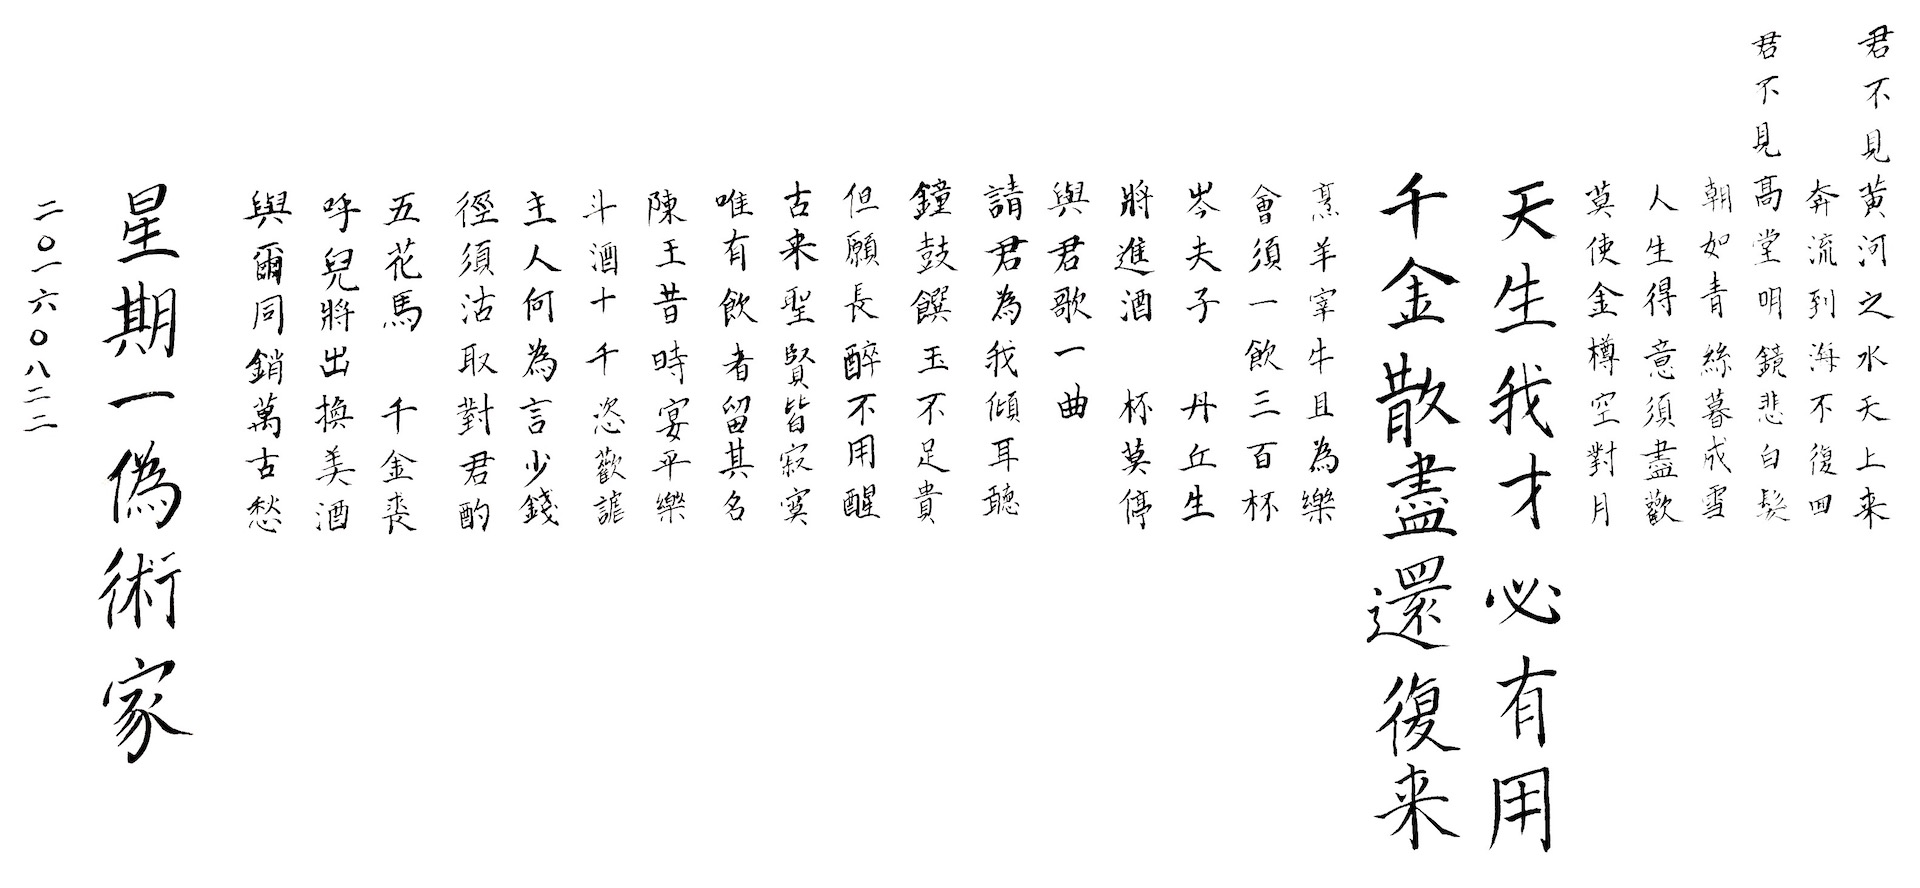 君不見黃河之水天上来
奔流到海不復回
君不見高堂明鏡悲白髮
朝如青絲暮成雪
人生得意須盡歡
莫使金樽空對月
天生我才必有用
千金散盡還復来
烹羊宰牛且為樂
會須一飲三百杯
岑夫子 丹丘生
將進酒 杯莫停
與君歌一曲
請君為我傾耳聽
鐘鼓饌玉不足貴
但願長醉不用醒
古来聖賢皆寂寞
唯有飲者留其名
陳王昔時宴平樂
斗酒十千恣歡謔
主人何為言少錢
徑須沽取對君酌
五花馬 千金裘
呼兒將出換美酒
與爾同銷萬古愁
星期一偽術家
二〇一六〇八二二